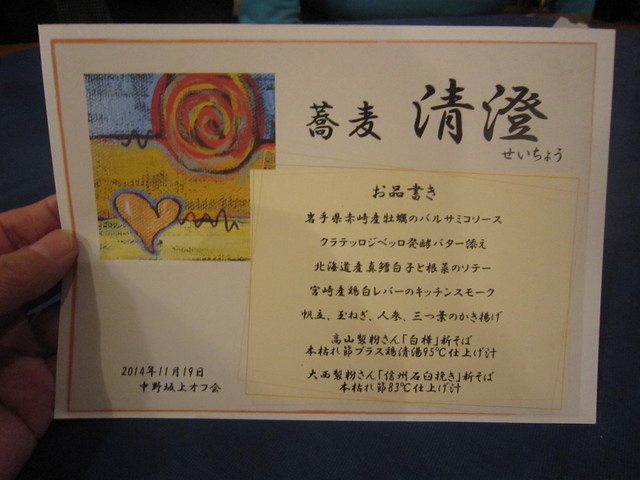 蕎麦 清澄
せいちょう
お品書き
岩手県赤崎産牡蠣のバルサミコソース
クラテッロジベッロ発酵バター添え
北海道産真鱈白子と根菜のソテー
宮崎産鶏白レバーのキッチンスモーク
帆立、玉ねぎ、人参、三つ葉のかき揚げ
高山製粉さん「白樺」新そば
本枯れ節プラス鶏清湯95℃仕上げ汁
大西製粉さん「信州石臼挽き」新そば
本枯れ節83℃仕上げ汁
2014年11月19日
中野坂上オフ会